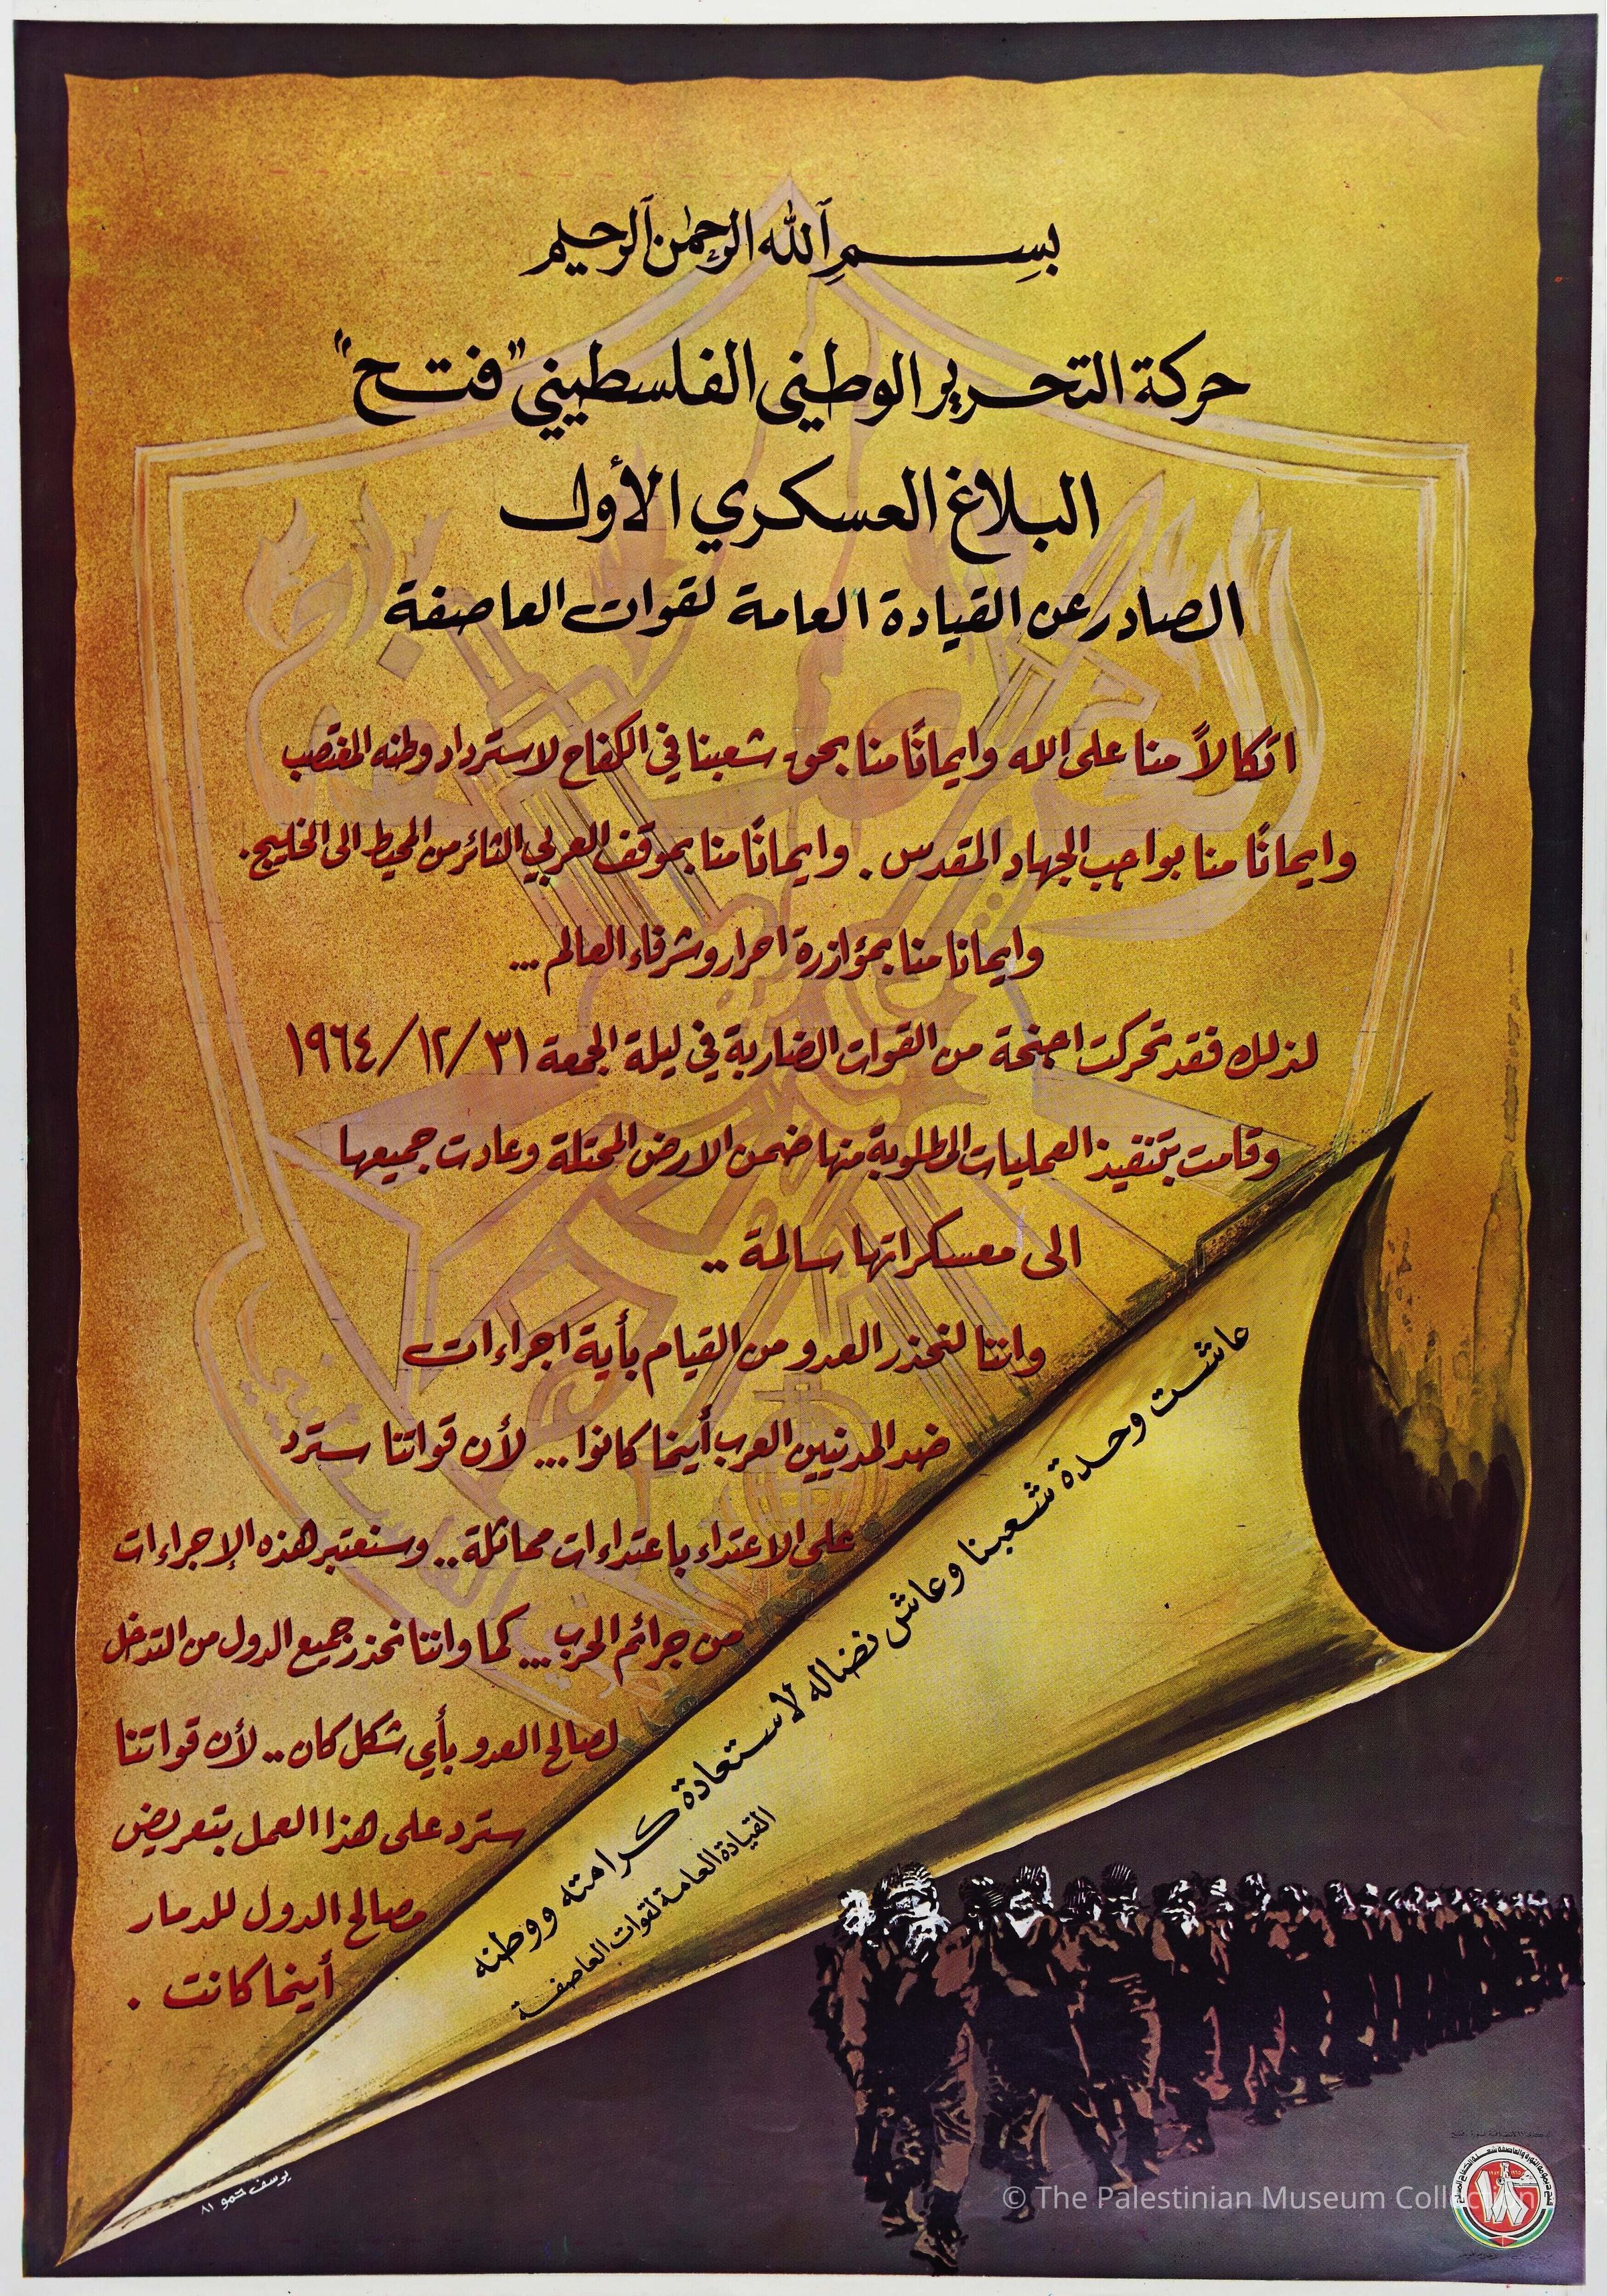 بسم الله الرحمن الرحيم
حركة التحرير الوطني الفلسطيني "فتح"
البلاغ العسكري الأول
الصادر عن القيادة العامة لقوات العاصفة
اتكالاً منا على الله وايمانًا منا بحق شعبنا في الكفاح لاسترداد وطنه المغتصب
وايمانًا منا بواجب الجهاد المقدس . وايمانًا منا بموقف العربي الثائر من المحيط الى الخليج .
وايمانا منا بمؤازرة احرار وشرفاء العالم ...
لذلك فقد تحركت اجنحة من القوات الضاربة في ليلة الجمعة ٣١/١٢/١٩٦٤
وقامت بتنفيذ العمليات المطلوبة منها ضمن الارض المحتلة وعادت جميعها
الى معسكراتها سالمة ..
واننا لنحذر العدو من القيام بأية اجراءات
ضد المدنيين العرب أينما كانوا ... لأن قواتنا سترد
على الاعتداء باعتداءات مماثلة .. وسنعتبر هذه الإجراءات
من جرائم الحرب ... كما واننا نحذر جميع الدول من التدخل
لصالح العدو بأي شكل كان .. لأن قواتنا
سترد على هذا العمل بتعريض
مصالح الدول للدمار
أينما كانت .
عاشت وحدة شعبنا وعاش نضاله لاستعادة كرامته ووطنه
القيادة العامة لقوات العاصفة
يوسف حمو ٨١
© The Palestinian Museum Collection